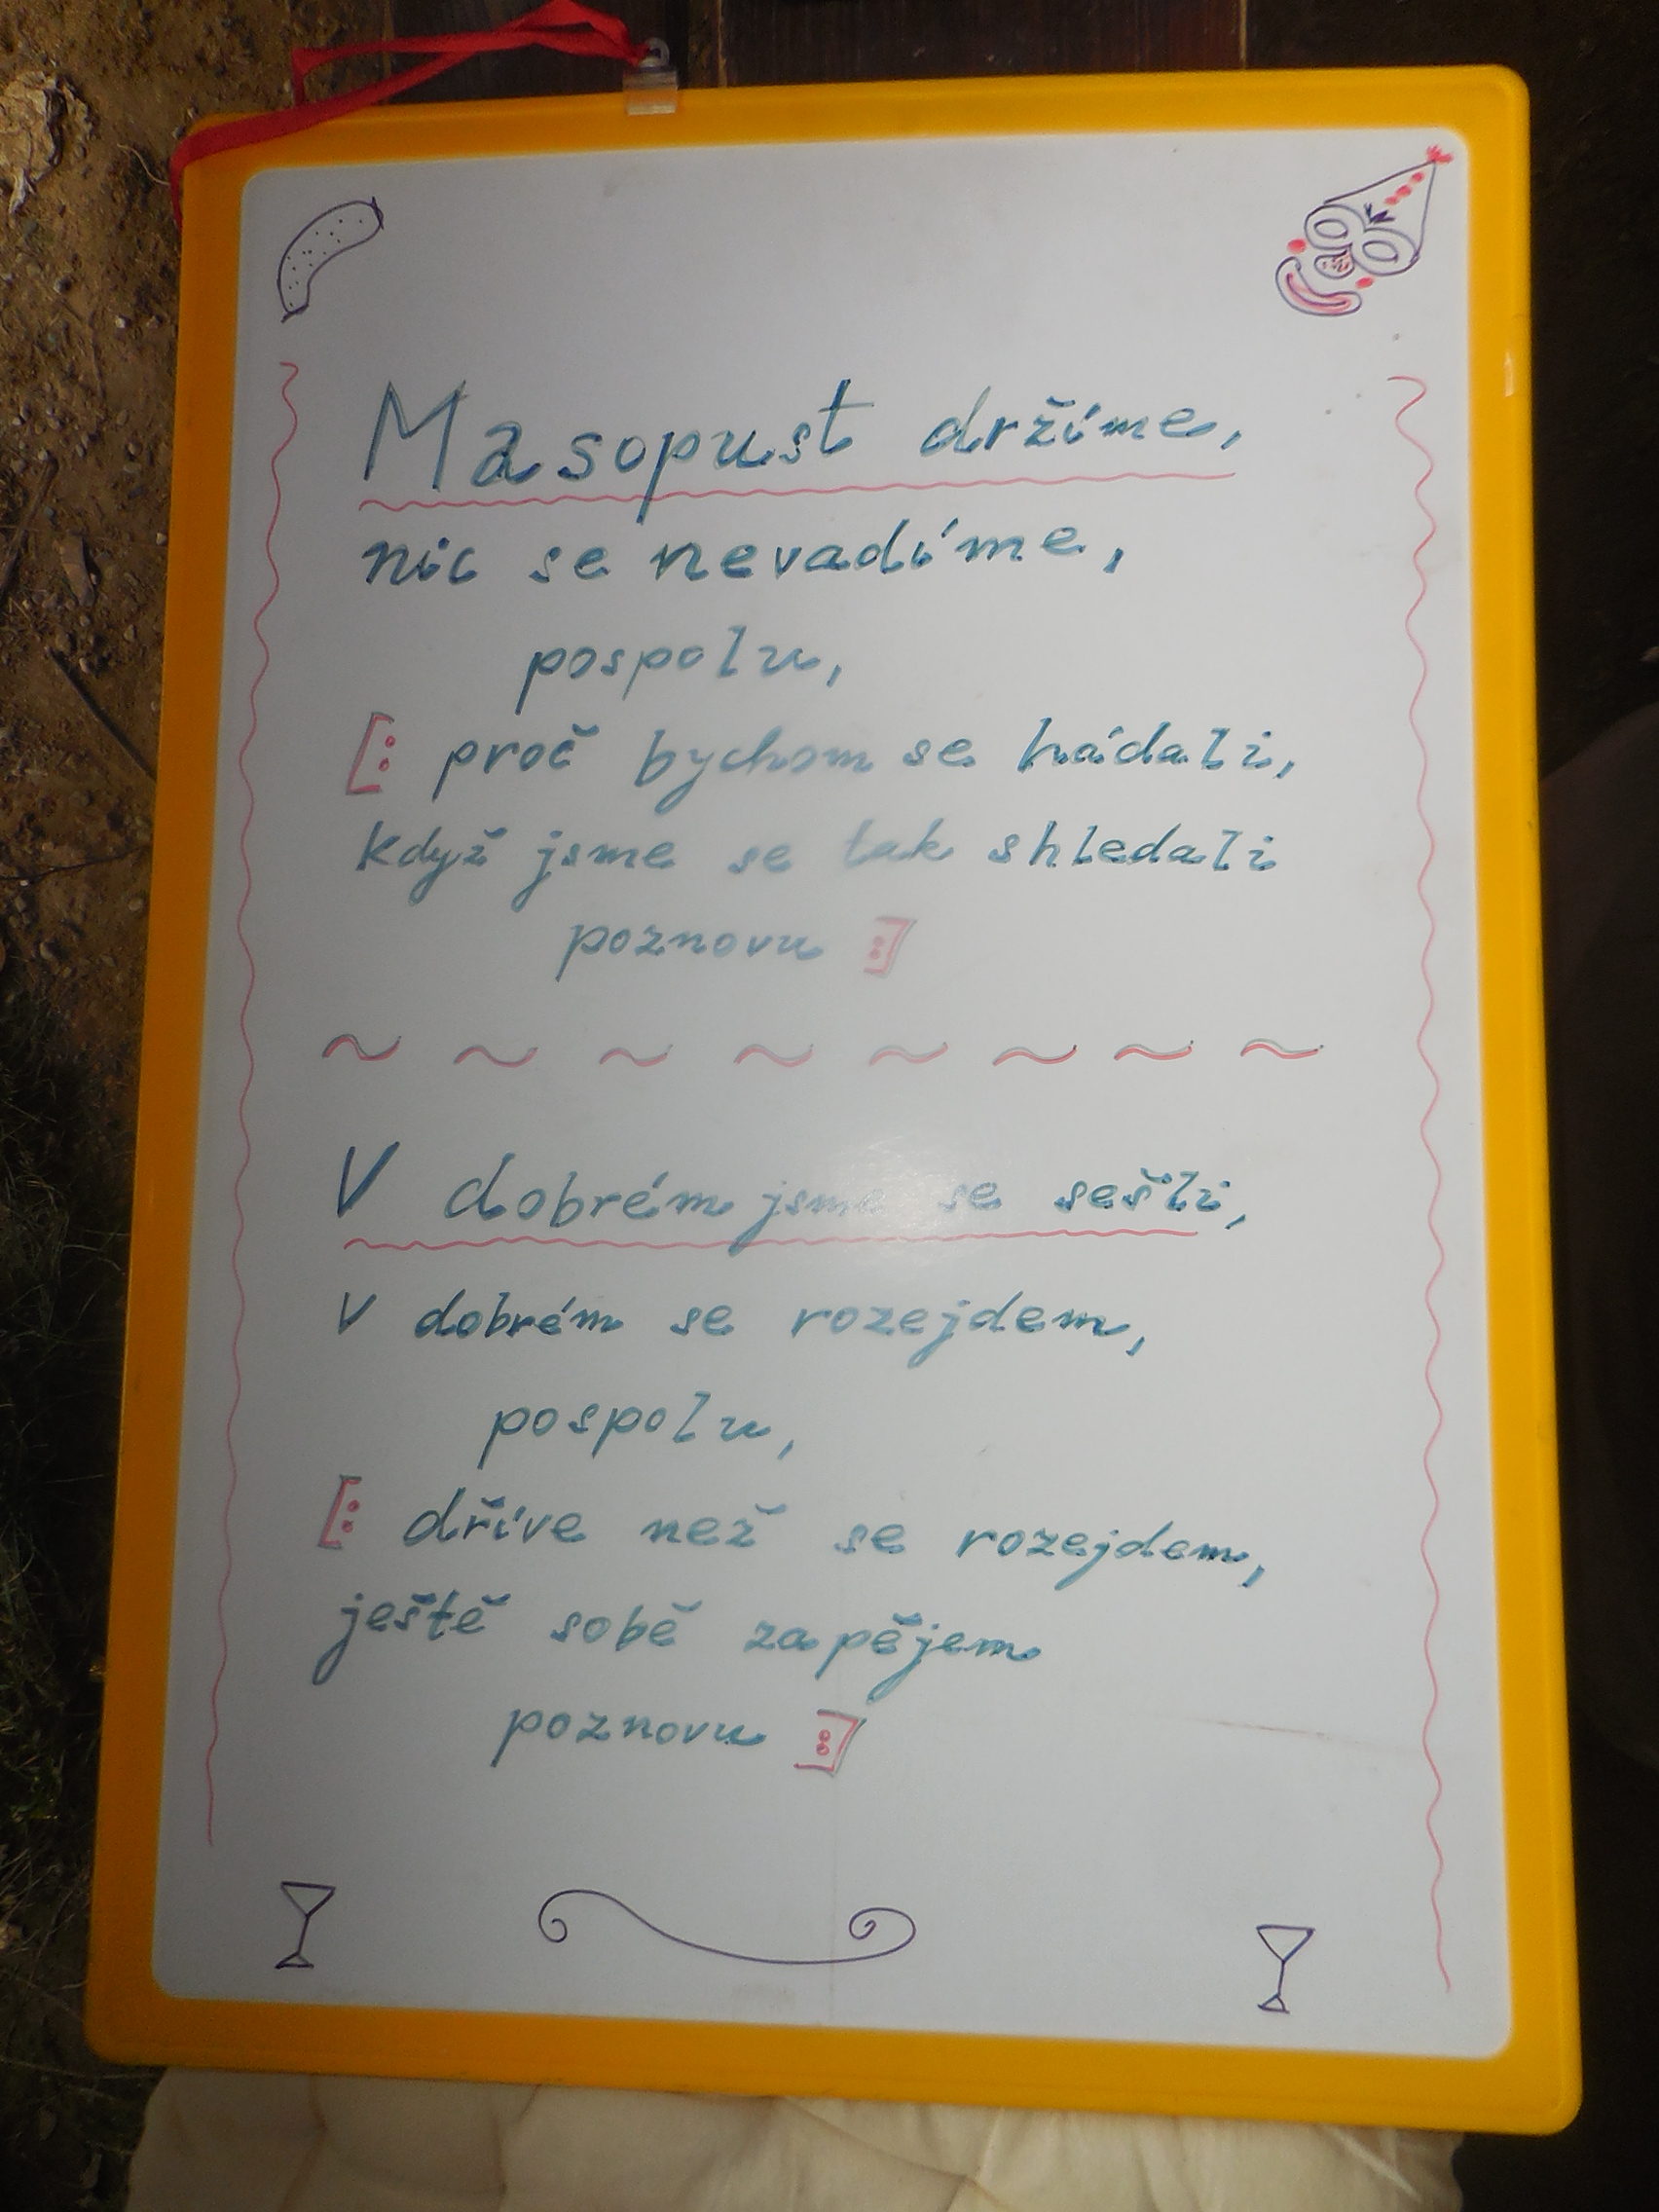 Masopust držíme,
nic se nevadíme,
pospolu,
[: proč bychom se hádali,
když jsme se tak shledali
poznovu :]
~ ~ ~ ~ ~ ~ ~ ~
V dobrém jsme se sešli,
v dobrém se rozejdem,
pospolu,
[: dříve než se rozejdem,
ještě sobě zapějem
poznovu :]